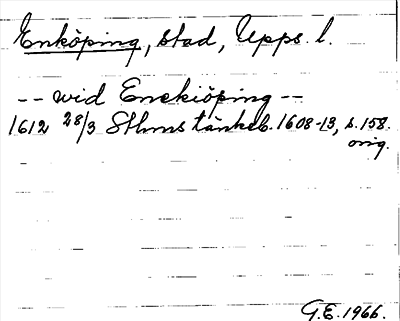 Enköping, stad, Upps. l.
-- wid Enekiöping --
1612 28/3 Sthms tänkeb. 1608-13, s. 158.
orig.
G.E. 1966.